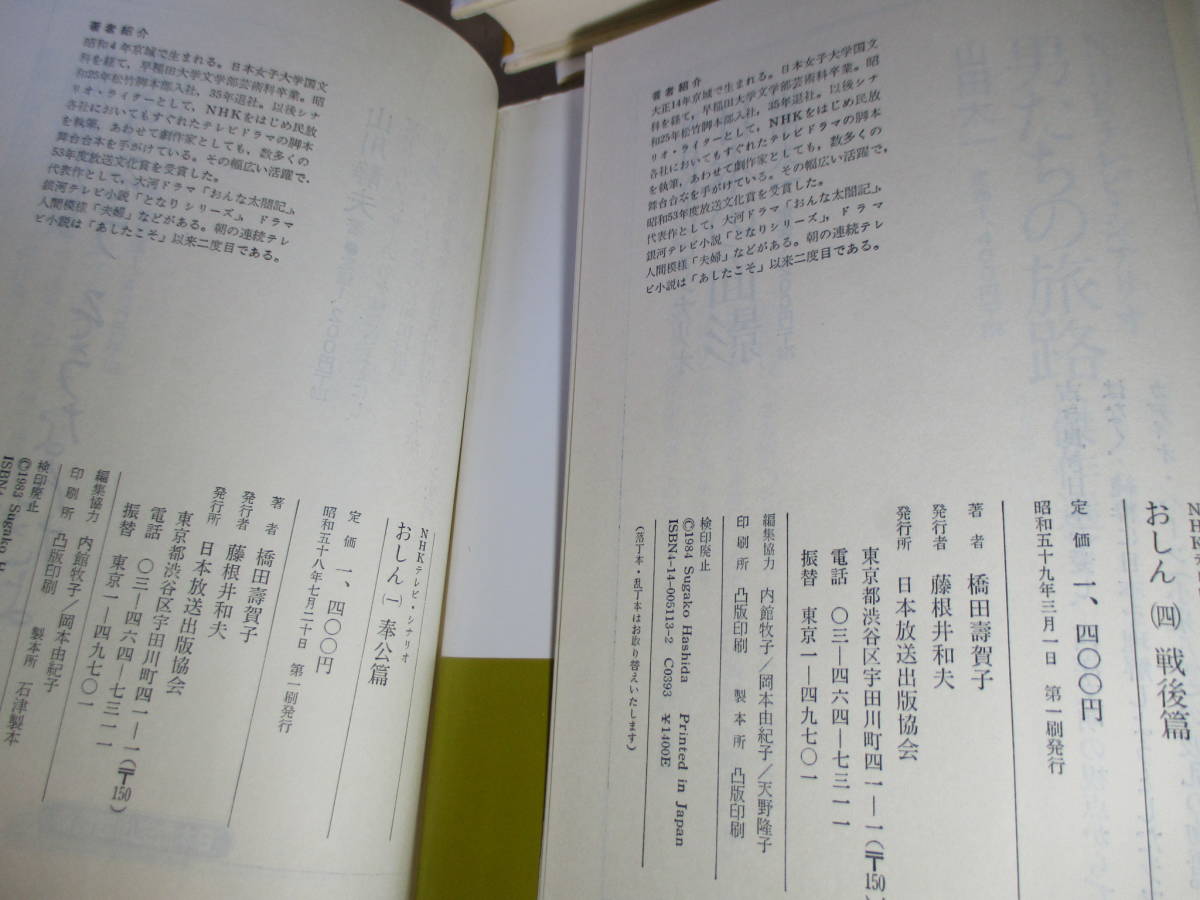 著者紹介
昭和4年京城で生まれる。日本女子大学国文
科を経て，早稲田大学文学部芸術科卒業。昭
和25年松竹脚本部入社，35年退社。以後シナ
リオ・ライターとして，NHKをはじめ民放
各社においてもすぐれたテレビドラマの脚本
を執筆，あわせて劇作家としても，数多くの
舞台台本を手がけている。その幅広い活躍で，
53年度放送文化賞を受賞した。
代表作として，大河ドラマ「おんな太閤記」，
銀河テレビ小説「となりシリーズ」，ドラマ
人間模様「夫婦」などがある。朝の連続テレ
ビ小説は「あしたこそ」以来二度目である。
NHKテレビ・シナリオ
おしん㈠ 奉公篇
定価 一、四〇〇円
昭和五十八年七月二十日 第一刷発行
著者 橋田壽賀子
発行者 藤根井和夫
発行所 日本放送出版協会
東京都渋谷区宇田川町四一—一（〒150）
電話 〇三—四六四—七三一一
振替 東京一—四九七〇一
編集協力 内館牧子／岡本由紀子
印刷所 凸版印刷 製本所 石津製本
検印廃止
©1983 Sugako H
ISBN4-14-
著者紹介
大正14年京城で生まれる。日本女子大学国文
科を経て，早稲田大学文学部芸術科卒業。昭
和25年松竹脚本部入社，35年退社。以後シナ
リオ・ライターとして，NHKをはじめ民放
各社においてもすぐれたテレビドラマの脚本
を執筆，あわせて劇作家としても，数多くの
舞台台本を手がけている。その幅広い活躍で，
昭和53年度放送文化賞を受賞した。
代表作として，大河ドラマ「おんな太閤記」，
銀河テレビ小説「となりシリーズ」，ドラマ
人間模様「夫婦」などがある。朝の連続テレ
ビ小説は「あしたこそ」以来二度目である。
NHKテレビ
おしん㈣ 戦後篇
定価 一、四〇〇円
昭和五十九年三月一日 第一刷発行
著者 橋田壽賀子
発行者 藤根井和夫
発行所 日本放送出版協会
東京都渋谷区宇田川町四一—一（〒150）
電話 〇三—四六四—七三一一
振替 東京一—四九七〇一
編集協力 内館牧子／岡本由紀子／天野隆子
印刷所 凸版印刷 製本所 凸版印刷
検印廃止
©1984 Sugako Hashida Printed in Japan
ISBN4-14-005113-2 C0393 ￥1400E
（落丁本・乱丁本はお取り替えいたします）